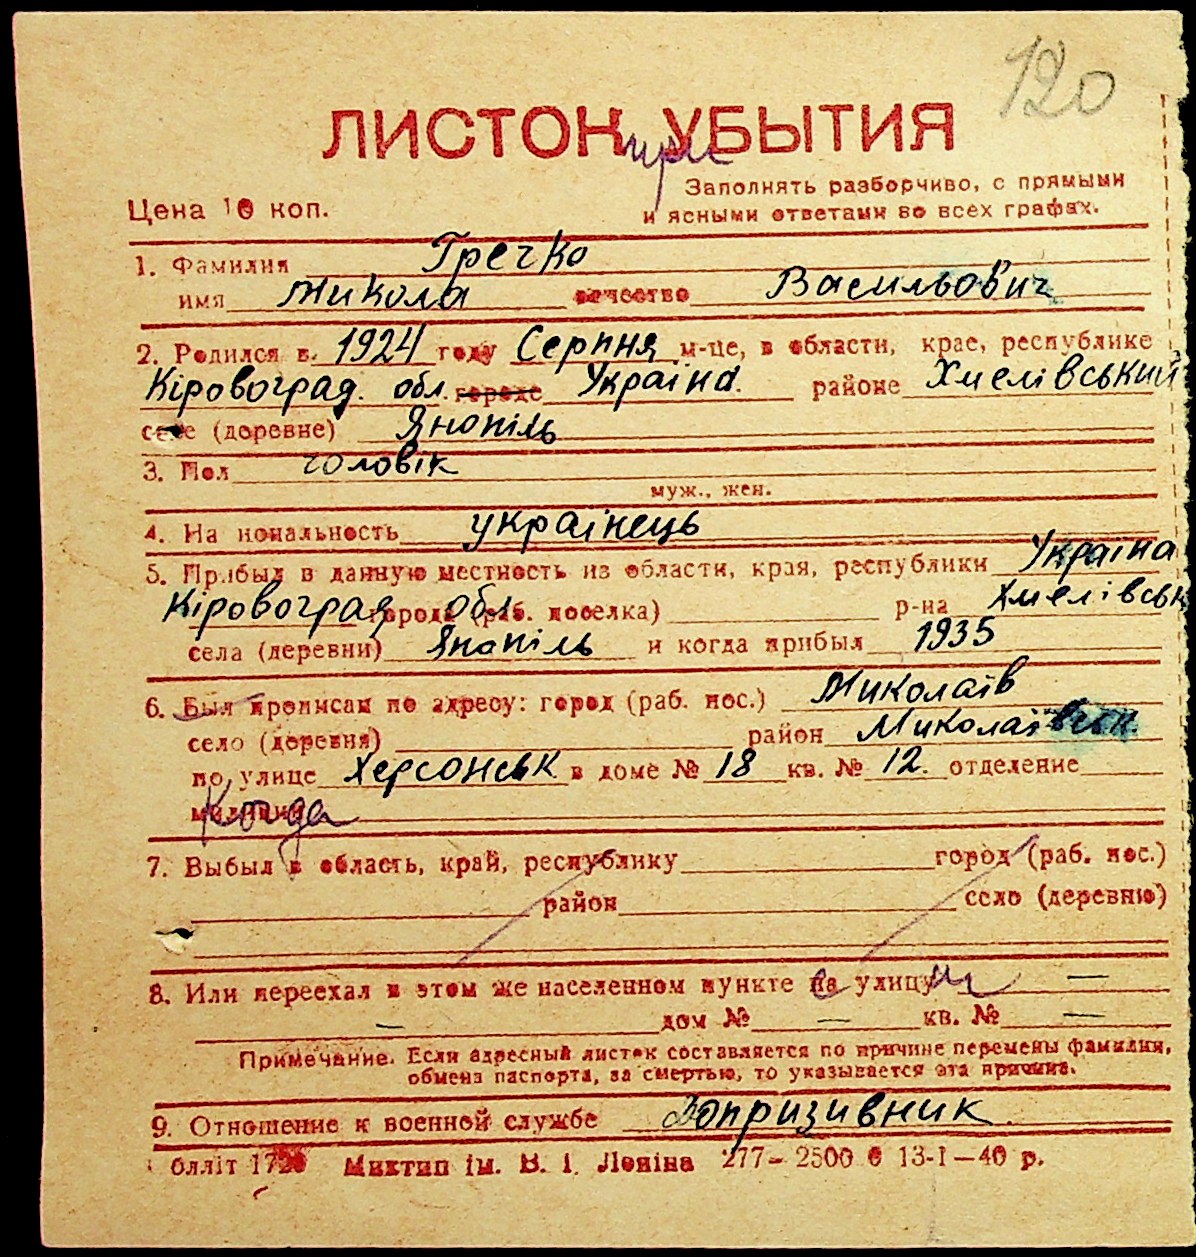 120
ЛИСТОК УБЫТИЯ
при
Заполнять разборчиво, с прямыми
Цена 10 коп. и ясными ответами во всех графах.
1. Фамилия Гречко
имя Микола отчество Васильович
2. Родился в 1924 году Серпня м-це, в области, крае, республике
Кіровоград. обл. городе Україна. районе Хмелівський
селе (деревне) Янопіль
3. Пол чоловік
муж., жен.
4. Национальность українець
5. Прибыл в данную местность из области, края, республики Україна
Кіровоград обл. города (раб. поселка) р-на Хмелівськ
села (деревни) Янопіль и когда прибыл 1935
6. Был прописан по адресу: город (раб. пос.) Миколаїв
село (деревня) район Миколаївськ.
по улице Херсонськ в доме № 18 кв. № 12. отделение
милиции Когда
7. Выбыл в область, край, республику город (раб. пос.)
район село (деревню)
8. Или переехал в этом же населенном пункте на с улицу и —
— дом № — кв. № —
Примечание. Если адресный листок составляется по причине перемены фамилии,
обмена паспорта, за смертью, то указывается эта причина.
9. Отношение к военной службе Допризивник
блліт 1720 Миктип ім. В. І. Леніна 277—2500 б 13-I—40 р.